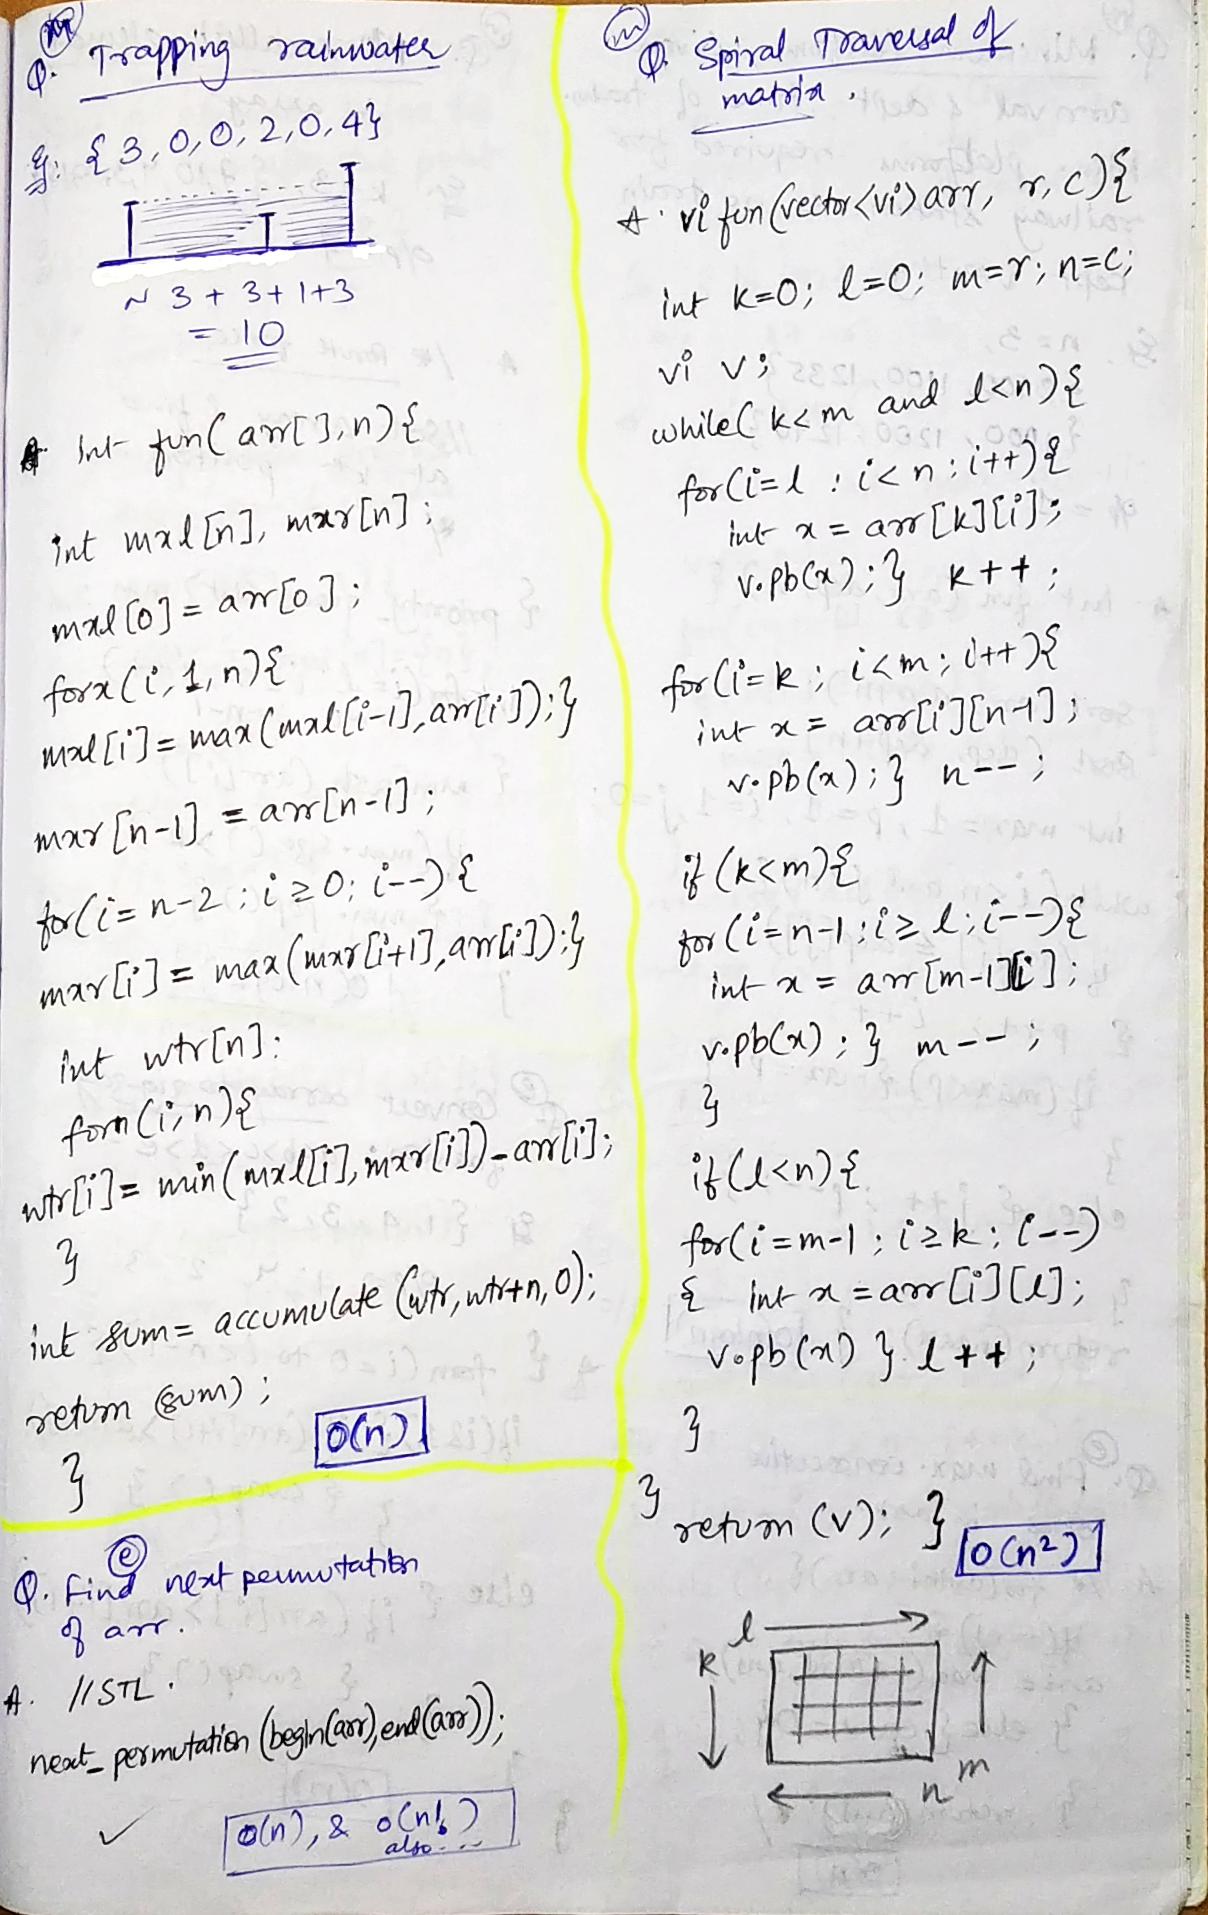 (m)
Q. Trapping rainwater
Eg: { 3, 0, 0, 2, 0, 4}
~ 3 + 3 + 1 + 3
= 10
A int fun( arr[], n) {
int mxl[n], mxr[n];
mxl[0] = arr[0];
forx(i, 1, n){
mxl[i] = max(mxl[i-1], arr[i]);}
mxr[n-1] = arr[n-1];
for(i = n-2 ; i ≥ 0; i--) {
mxr[i] = max(mxr[i+1], arr[i]);}
int wtr[n];
forn(i, n){
wtr[i] = min(mxl[i], mxr[i]) - arr[i];
}
int sum = accumulate (wtr, wtr+n, 0);
return (sum) ;
}
O(n)
(e)
Q. Find next permutation
of arr.
A. //STL.
next_permutation (begin(arr), end(arr));
✓
O(n), & O(n!)
also...
(m)
Q. Spiral Traversal of
matrix.
A. vi fun(vector<vi> arr, r, c){
int k=0; l=0; m=r; n=c;
vi v;
while( k<m and l<n){
for(i=l ; i<n; i++){
int x = arr[k][i];
v.pb(x);} k++;
for(i=k ; i<m; i++){
int x = arr[i][n-1];
v.pb(x);} n--;
if (k<m){
for (i=n-1; i≥l; i--){
int x = arr[m-1][i];
v.pb(x);} m--;
}
if(l<n){
for(i=m-1 ; i≥k; i--)
{ int x = arr[i][l];
v.pb(x) } l++;
}
}
return (v); }
O(n²)
l
k
m
n